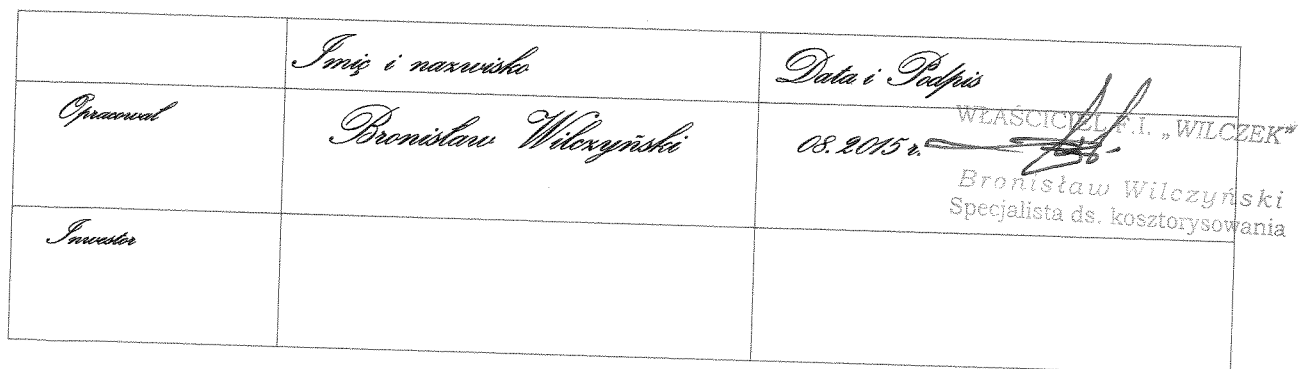 Imię i nazwisko
Data i Podpis
Opracował
Bronisław Wilczyński
08.2015 r.
WŁAŚCICIEL F.I. „WILCZEK"
Bronisław Wilczyński
Specjalista ds. kosztorysowania
Inwestor